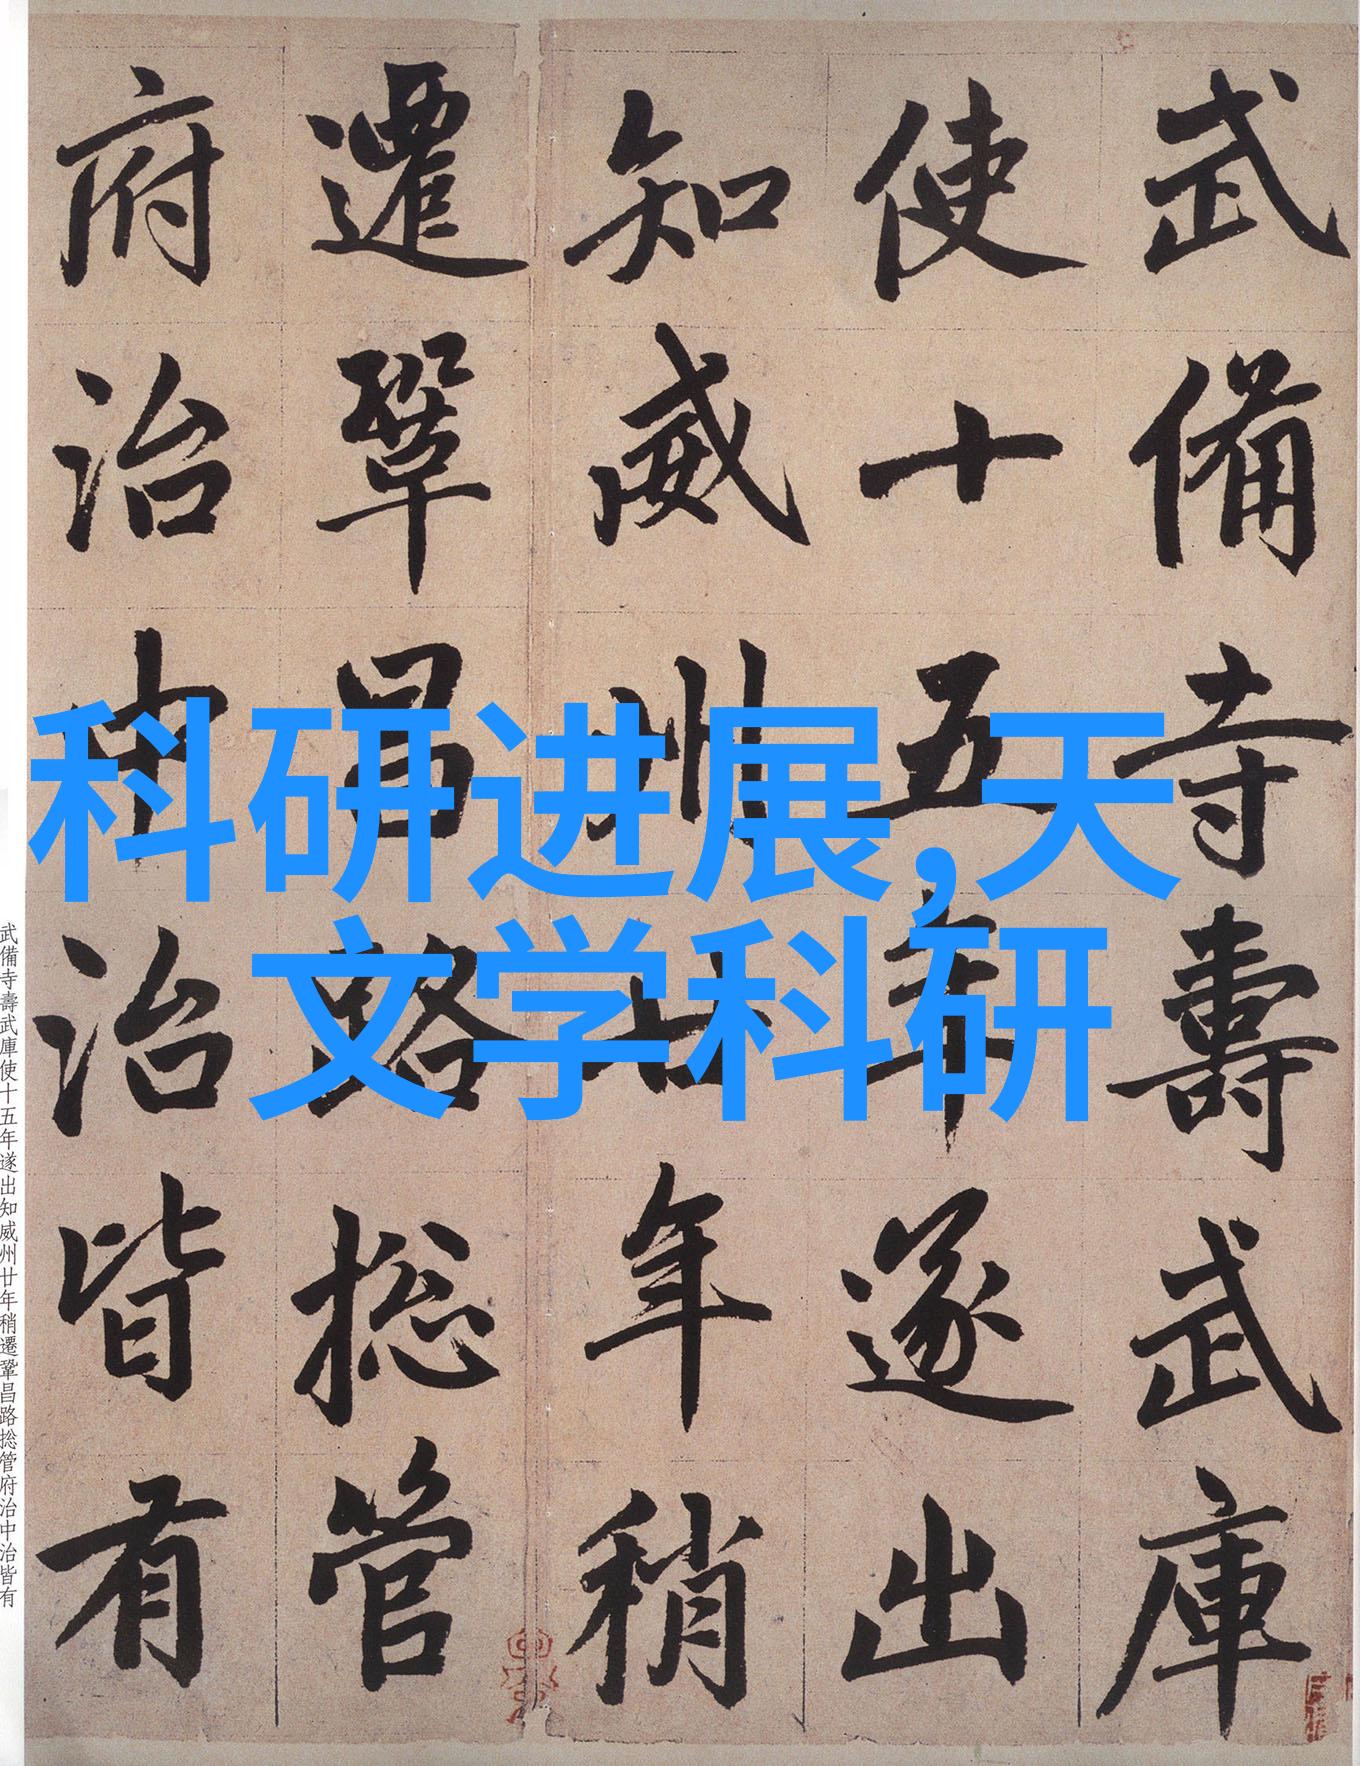 武備寺壽武庫
使十五年遂出
知威州廿年稍
遷鞏昌路捴管
府治中治皆有
科研进展,天
文学科研
武備寺壽武庫使十五年遂出知威州廿年稍遷鞏昌路捴管府治中治皆有